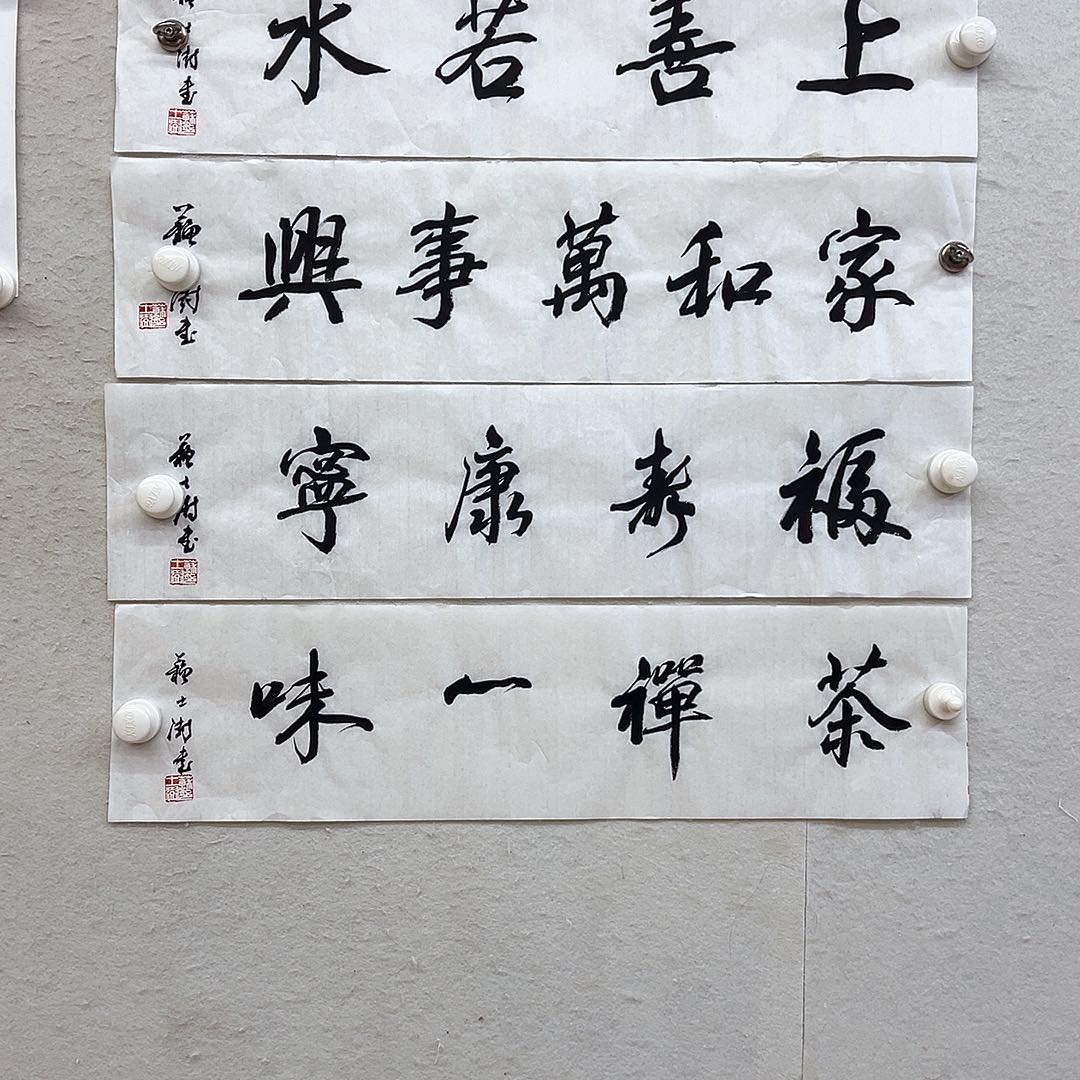 上善若水
士澍書
家和萬事興
蘇士澍書
福壽康寧
蘇士澍書
茶禪一味
蘇士澍書